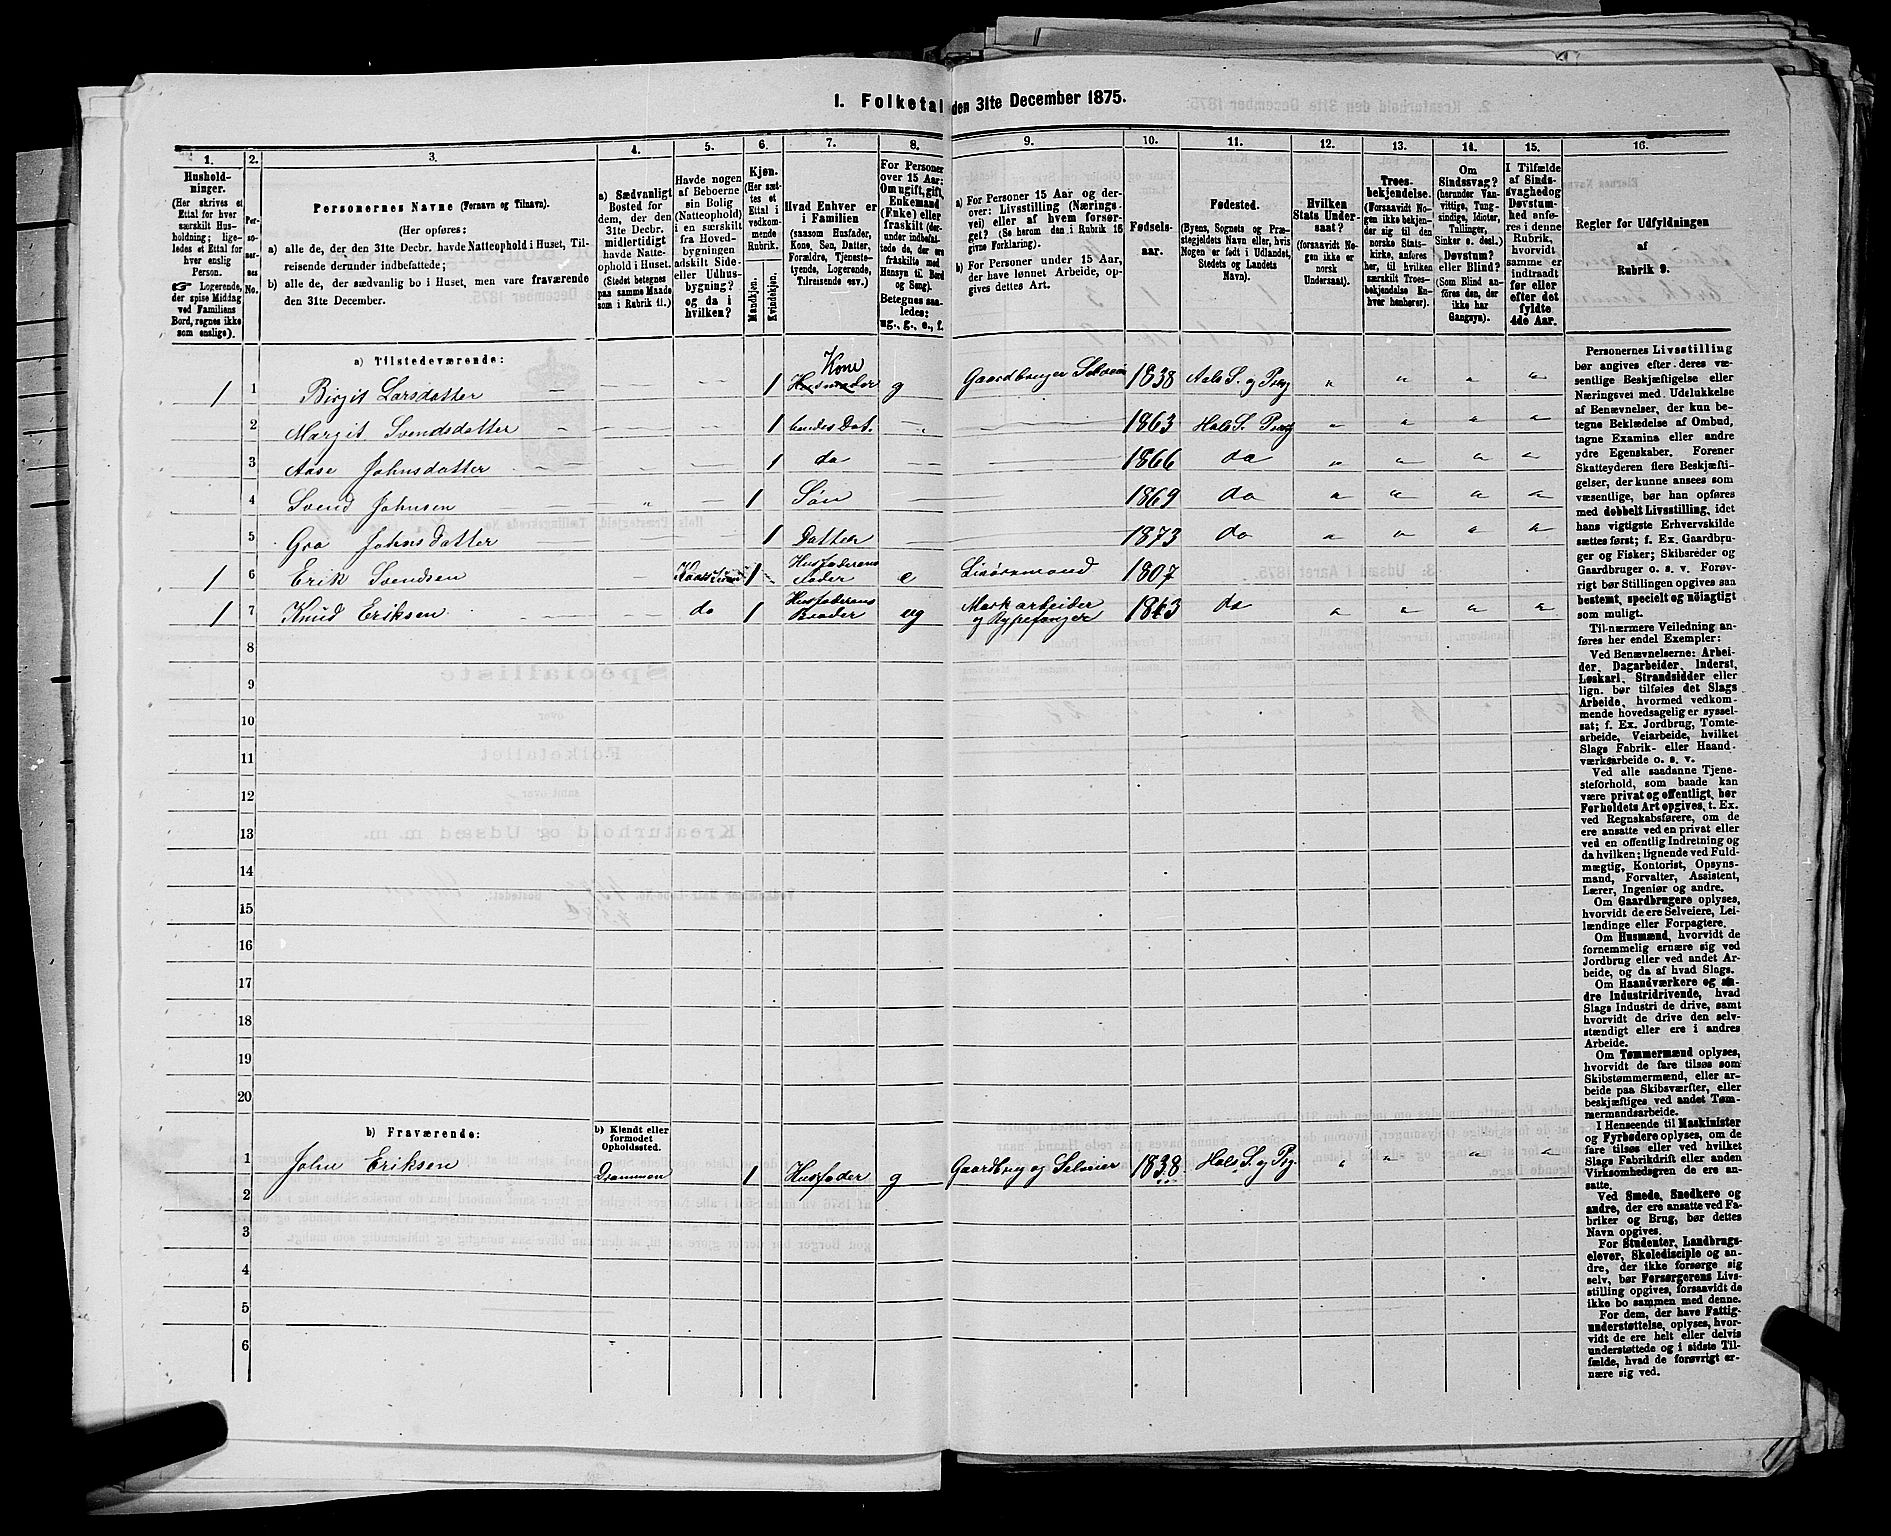 1. Folketal den 31te December 1875.
1. 2. 3. 4. 5. 6. 7. 8. 9. 10. 11. 12. 13. 14. 15. 16.
Husholdninger.
(Her skrives et
Ettal for hver
særskilt Husholdning;
ligeledes
et Ettal for
hver enslig
Person.
☛ Logerende,
der spise Middag
ved Familiens
Bord, regnes ikke
som enslige).
Personernes No.
Personernes Navne (Fornavn og Tilnavn).
(Her opføres:
a) alle de, der den 31te Decbr. havde Natteophold i Huset, Tilreisende
derunder indbefattede;
b) alle de, der sædvanlig bo i Huset, men vare fraværende
den 31te December.
a) Sædvanligt
Bosted for
dem, der den
31te Decbr.
midlertidigt
havde Natteophold
i Huset.
(Stedet betegnes
paa samme Maade
som i Rubrik 11.)
Havde nogen
af Beboerne
sin Bolig
(Natteophold)
i en særskilt
fra Hovedbygningen
adskilt Side-
eller Udhusbygning?
og da i
hvilken?
Kjøn.
(Her sættes
et
Ettal i
vedkommende
Rubrik.
Mandkjøn.
Kvindekjøn.
Hvad Enhver er
i Familien
(saasom Husfader,
Kone, Søn, Datter,
Forældre, Tjenestetyende,
Logerende,
Tilreisende osv.)
For Personer
over 15 Aar:
Om ugift, gift,
Enkemand
(Enke) eller
fraskilt (derunder
indbefattede
de, der ere
fraskilte med
Hensyn til Bord
og Seng).
Betegnes saaledes:
ug., g., e., f.
a) For Personer 15 Aar og derover:
Livsstilling (Næringsvei)
eller af hvem forsørget?
(Se herom den i Rubrik 16
givne Forklaring).
b) For Personer under 15 Aar,
der have lønnet Arbeide, opgives
dettes Art.
Fødselsaar.
Fødested.
(Byens, Sognets og Præstegjeldets
Navn eller, hvis
Nogen er født i Udlandet,
Stedets og Landets
Navn).
Hvilken
Stats Undersaat?
(forsaavidt Nogen
ikke er
norsk
Undersaat).
Troesbekjendelse.
(Forsaavidt Nogen
ikke bekjender
sig til den
norske Statskirke,
anføres
her, til hvilken
særskilt Troesbekjendelse
Enhver
henhører).
Om
Sindssvag?
(herunder Vanvittige,
Tungsindige,
Idioter,
Tullinger,
Sinker o. desl.)
Døvstum?
eller Blind?
(Som Blind anføres
den, der
ikke har
Gangsyn).
I Tilfælde
af Sindssvaghed
og
Døvstumhed
anføres
i denne
Rubrik,
hvorvidt
samme er
indtraadt
før eller
efter det
fyldte
4de Aar.
Regler for Udfyldningen
af
Rubrik 9.
a) Tilstedeværende:
1 1 Birgit Larsdatter 1 Kone Husmoder g Gaardbruger Selveier 1838 Aals S. og Præg
2 Margit Svendsdatter 1 hendes Dat. 1863 Hols S. Præg
3 Aase Johnsdatter 1 do 1866 do
4 Svend Johnsen 1 Søn 1869 do
5 Gro Johnsdatter 1 Datter 1873 do
1 6 Erik Svendsen 1 Husfaderens Fader e 1807
1 7 Knud Eriksen do 1 Husfaderens Broder ug Markarbeider og Rypefanger 1843 do
8
9
10
11
12
13
14
15
16
17
18
19
20
b) Fraværende:
b) Kjendt eller
formodet
Opholdssted.
1 John Eriksen Drammen 1 Husfader g Gaardbrug og Selveier 1838 Hols S. og Prg.
2
3
4
5
6
Personernes Livsstilling
bør angives efter deres væsentlige
Beskjæftigelse eller
Næringsvei med Udelukkelse
af Benævnelser, der kun betegne
Beklædelse af Ombud,
tagne Examina eller andre
ydre Egenskaber. Forener
Skatteyderen flere Beskjæftigelser,
der kunne ansees som
væsentlige, bør han opføres
med dobbelt Livsstilling, idet
hans vigtigste Erhvervskilde
sættes først; f. Ex. Gaardbruger
og Fisker; Skibsreder og
Gaardbruger o. s. v. Forøvrigt
bør Stillingen opgives saa
bestemt, specielt og nøiagtigt
som muligt.
Til nærmere Veiledning anføres
her endel Exempler:
Ved Benævnelserne: Arbeider,
Dagarbeider, Inderst,
Løskarl, Strandsidder eller
lign. bør tilføies det Slags
Arbeide, hvormed vedkommende
hovedsagelig er sysselsat;
f. Ex. Jordbrug, Tomtearbeide,
Veiarbeide, hvilket
Slags Fabrik- eller Haandværksarbeide
o. s. v.
Ved alle saadanne Tjenesteforhold,
som baade kan
være privat og offentligt, bør
Forholdets Art opgives, t. Ex.
ved Regnskabsførere, om de
ere ansatte ved en privat eller
ved en offentlig Indretning og
da hvilken; lignende ved Fuldmægtig,
Kontorist, Opsynsmand,
Forvalter, Assistent,
Lærer, Ingeniør og andre.
Om Gaardbrugere oplyses,
hvorvidt de ere Selveiere, Leilændinge
eller Forpagtere.
Om Husmænd, hvorvidt de
fornemmelig ernære sig ved
Jordbrug eller ved andet Arbeide,
og da af hvad Slags.
Om Haandværkere og andre
Industridrivende, hvad
Slags Industri de drive, samt
hvorvidt de drive den selvstændigt
eller ere i andres
Arbeide.
Om Tømmermænd oplyses,
hvorvidt de fare tilsøs som
Skibstømmermænd, eller arbeide
paa Skibsværfter, eller
beskjæftiges ved andet Tømmermandsarbeide.
I Henseende til Maskinister
og Fyrbødere oplyses, om de
fare tilsøs eller ved hvilket
Slags Fabrikdrift eller anden
Virksomhedsgren de ere ansatte.
Ved Smede, Snedkere og
andre, der ere ansatte ved Fabriker
og Brug, bør dettes
Navn opgives.
For Studenter, Landbrugselever,
Skoledisciple og andre,
der ikke forsørge sig
selv, bør Forsørgerens Livsstilling
opgives, forsaavidt de
ikke bo sammen med denne.
For dem, der have Fattigunderstøttelse,
oplyses, hvorvidt
de ere helt eller delvis
understøttede og i sidste Tilfælde,
hvad de forøvrigt ernære
sig ved.